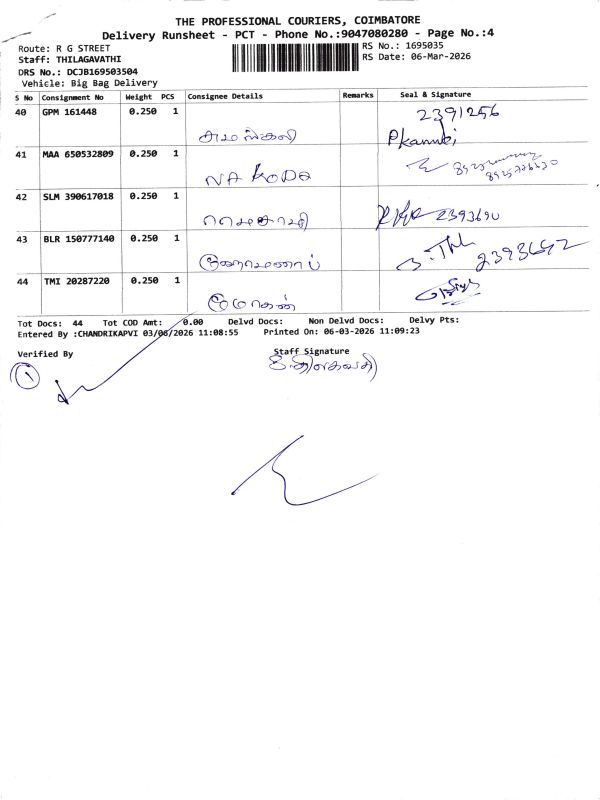 THE PROFESSIONAL COURIERS, COIMBATORE
Delivery Runsheet - PCT - Phone No.:9047080280 - Page No.:4
Route: R G STREET
RS No.: 1695035
Staff: THILAGAVATHI
RS Date: 06-Mar-2026
DRS No.: DCJB169503504
Vehicle: Big Bag Delivery
S No Consignment No Weight PCS Consignee Details Remarks Seal & Signature
40 GPM 161448 0.250 1 2391256
41 MAA 650532809 0.250 1 NAKODA
42 SLM 390617018 0.250 1 2393690
43 BLR 150777140 0.250 1
44 TMI 20287220 0.250 1
Tot Docs: 44 Tot COD Amt: 0.00 Delvd Docs: Non Delvd Docs: Delvy Pts:
Entered By :CHANDRIKAPVI 03/06/2026 11:08:55 Printed On: 06-03-2026 11:09:23
Verified By Staff Signature
1